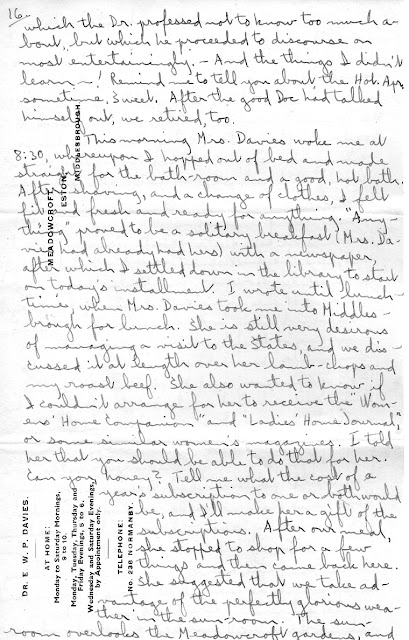 16-
which the Dr. professed not to know too much a-
bout, but which he proceeded to discourse on
most entertainingly. - And the things I didn't
learn! Remind me to tell you about the Hot. Apr.
sometime, Sweet. After the good Doc had talked
himself out, we retired, too.
This morning Mrs. Davies woke me at
8:30, whereupon I hopped out of bed and made
straight for the bath-room and a good, hot bath.
After shaving, and a change of clothes, I felt
fit and fresh and ready for anything. "Any-
thing" proved to be a solitary breakfast (Mrs. Da-
vies had already had hers) with a newspaper,
after which I settled down in the library to start
on today's installment. I wrote until lunch-
time, when Mrs. Davies took me into Middles-
brough for lunch. She is still very desirous
of managing a visit to the States, and we dis-
cussed it at length over her lamb-chops and
my roast beef. She also wanted to know if
I couldn't arrange for her to receive the "Wom-
ens' Home Companion" and "Ladies' Home Journal",
or some similar women's magazines. I told
her that you should be able to do that for her.
Can you, honey? Tell me what the cost of a
year's subscription to one or both would
be, and I'll make her a gift of the
subscription. After our meal,
she stopped to shop for a few
things and then came back here.
She suggested that we take ad-
vantage of the perfectly glorious wea-
ther in the sun-room. The sun-
room overlooks the Meadowcroft gardens, and
MEADOWCROFT,
ESTON,
MIDDLESBROUGH
DR. E. W. P. DAVIES.
AT HOME:
Monday to Saturday Mornings,
9 to 10.
Monday, Tuesday, Thursday and
Friday Evenings, 5 to 6.
Wednesday and Saturday Evenings,
by Appointment only.
TELEPHONE:
No. 238 NORMANBY.